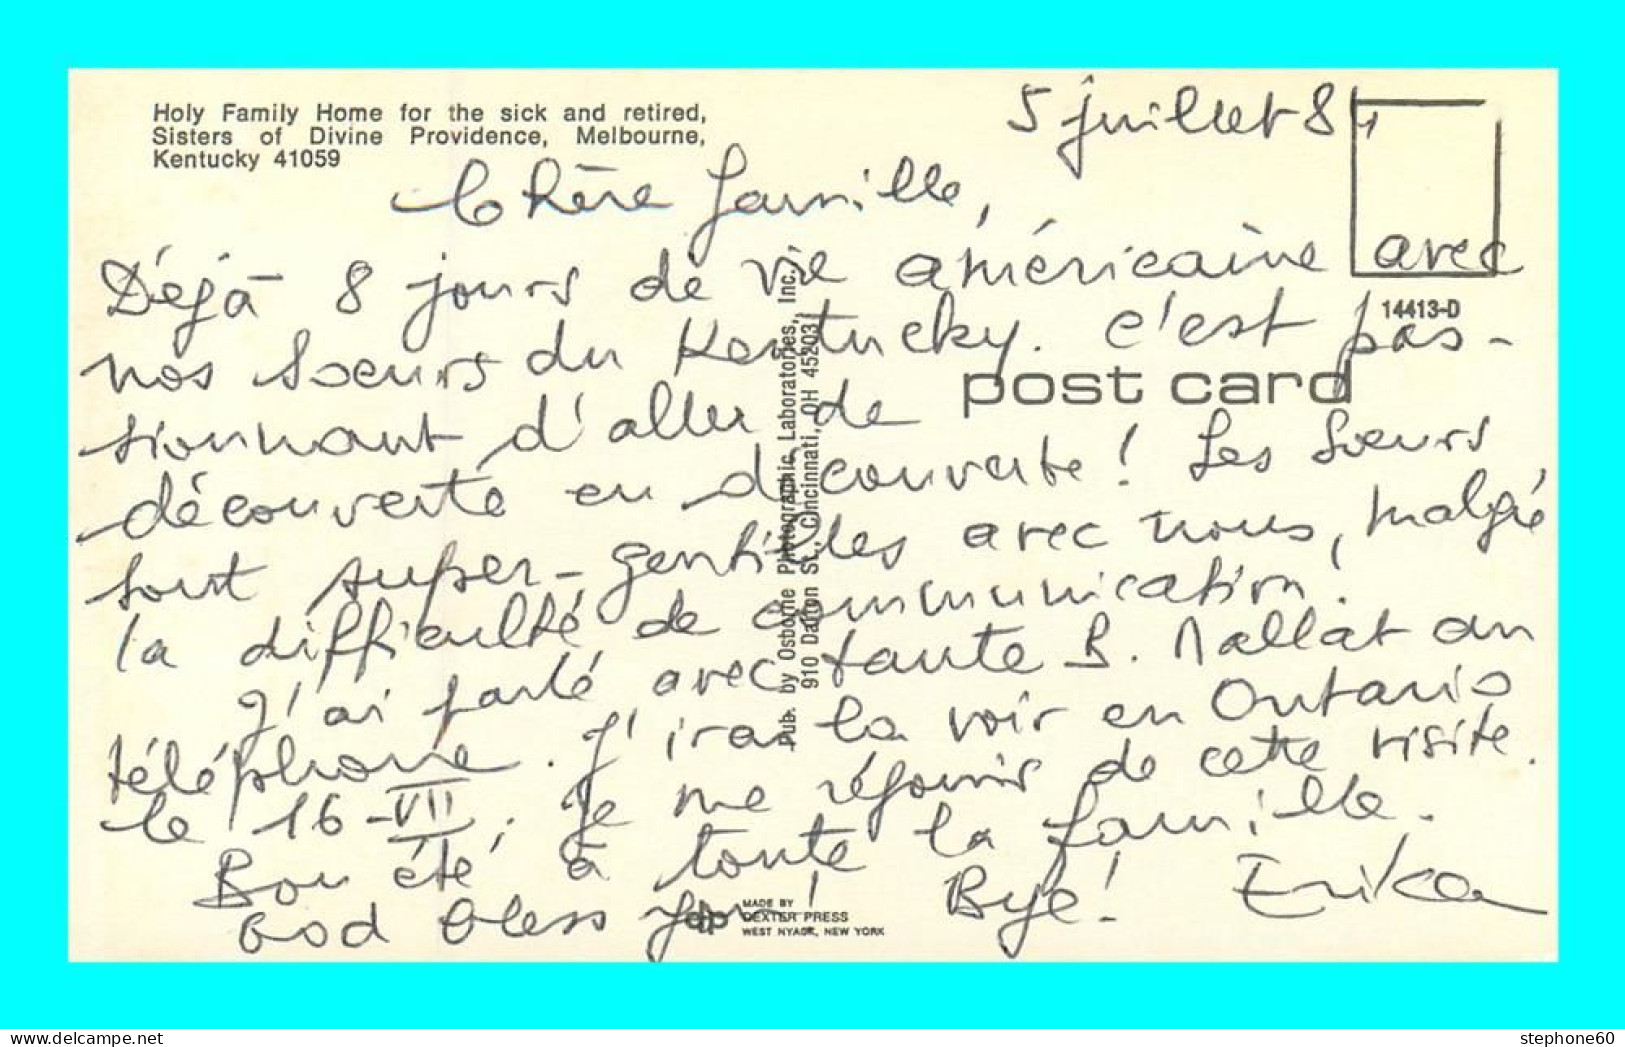 Holy Family Home for the sick and retired,
Sisters of Divine Providence, Melbourne,
Kentucky 41059
5 juillet 84
Chère famille,
Déjà 8 jours de vie américaine avec
nos Soeurs du Kentucky. C'est pas-
sionnant d'aller de
découverte en découverte! Les Soeurs
sont super-gentilles avec nous, malgré
la difficulté de communication.
J'ai parlé avec tante B. Mallat au
téléphone. J'irai la voir en Ontario
le 16-VII; je me réjouis de cette visite.
Bon été à toute la famille.
God bless you! Bye! Erika
14413-D
post card
Pub. by Osborne Photographic Laboratories, Inc.
910 Dalton St., Cincinnati, OH 45203
dp
MADE BY
DEXTER PRESS
WEST NYACK, NEW YORK
stephone60